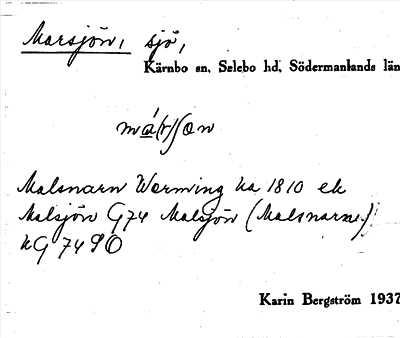 Marsjön, sjö,
Kärnbo sn, Selebo hd, Södermanlands län
má(r)ʃon
Malsnarn Werming ka 1810 ek
Malsjön G74 Malsjön (Malsnaren)
kG 74 SO
Karin Bergström 1937